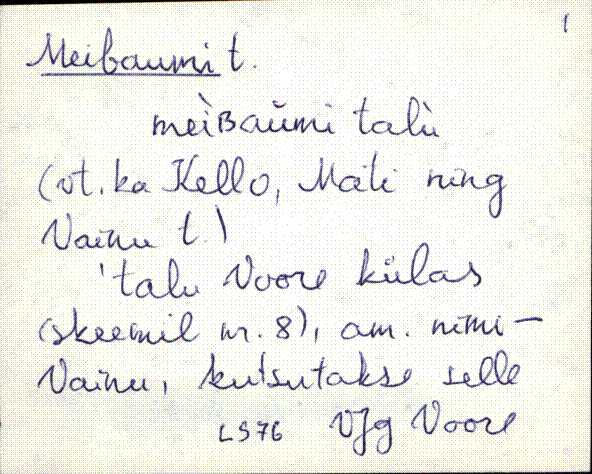 1
Meibaumi t.
meìʙaŭmi talù
(vt. ka Kello, Mäti ning
Vainu t.)
'talu Voore külas
(skeemil nr. 8), am. nimi –
Vainu, kutsutakse selle
LS76 VJg Voore